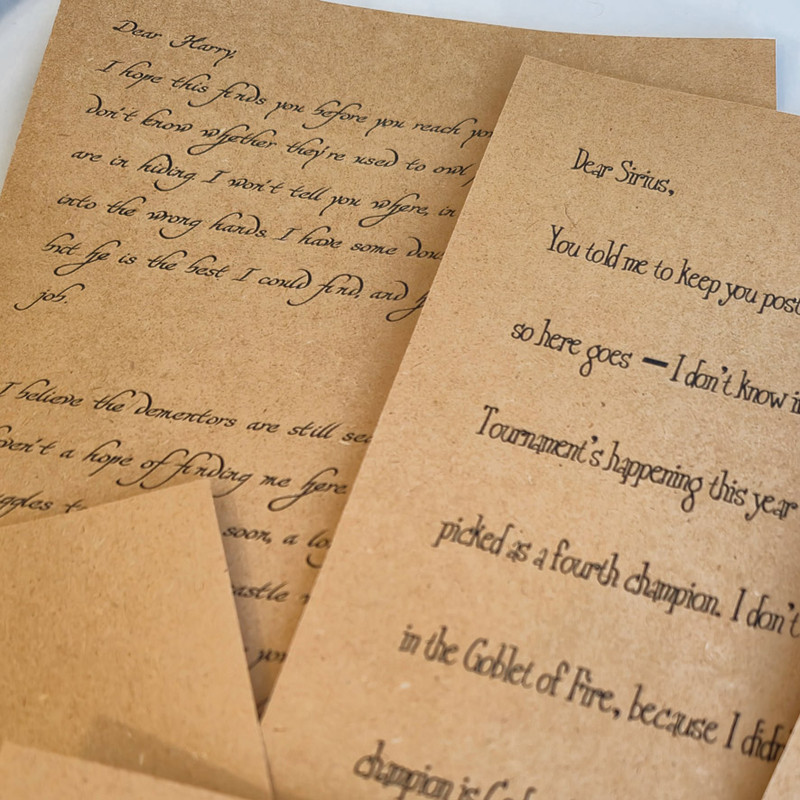 Dear Harry,
I hope this finds you before you reach
don't know whether they're used to owl
are in hiding. I won't tell you where, in
into the wrong hands. I have some
but he is the best I could find, and
job.
I believe the dementors are still
a hope of finding me here.
soon, a
Dear Sirius,
You told me to keep you post
so here goes — I don't know
Tournament's happening this year
picked as a fourth champion. I don't
in the Goblet of Fire, because I didn
champion is